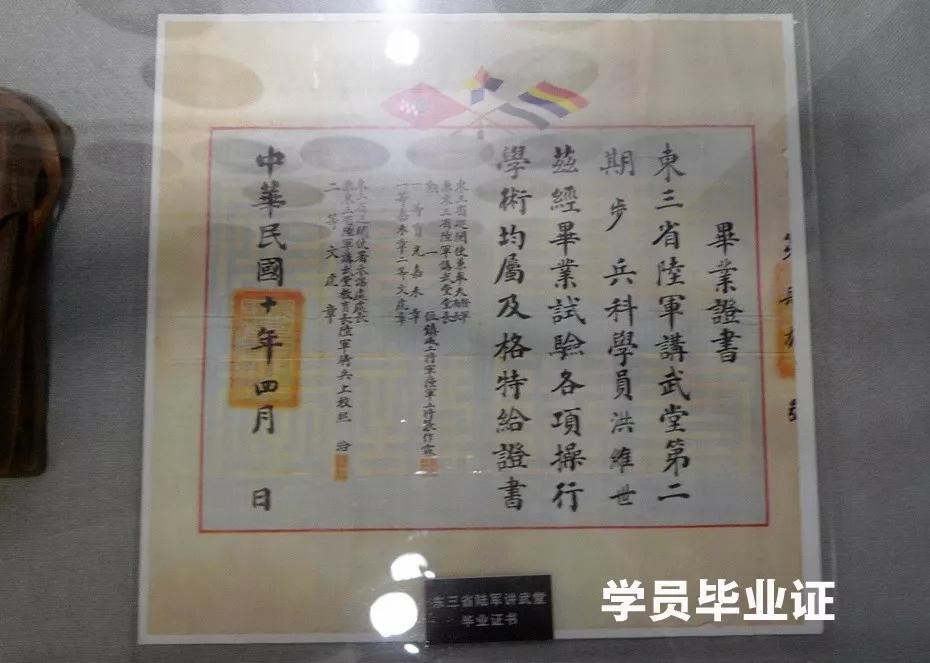 畢業證書
東三省陸軍講武堂第二
期步兵科學員洪維世
茲經畢業試驗各項操行
學術均屬及格特給證書
東三省巡閱使兼奉天督軍
兼東三省陸軍講武堂堂長
勳一位鎮威上將軍陸軍上將張作霖
一等嘉禾章二等文虎章
兼東三省陸軍講武堂教育長陸軍騎兵上校熙洽
二等文虎章
中華民國十年四月 日
东三省陆军讲武堂
毕业证书
学员毕业证